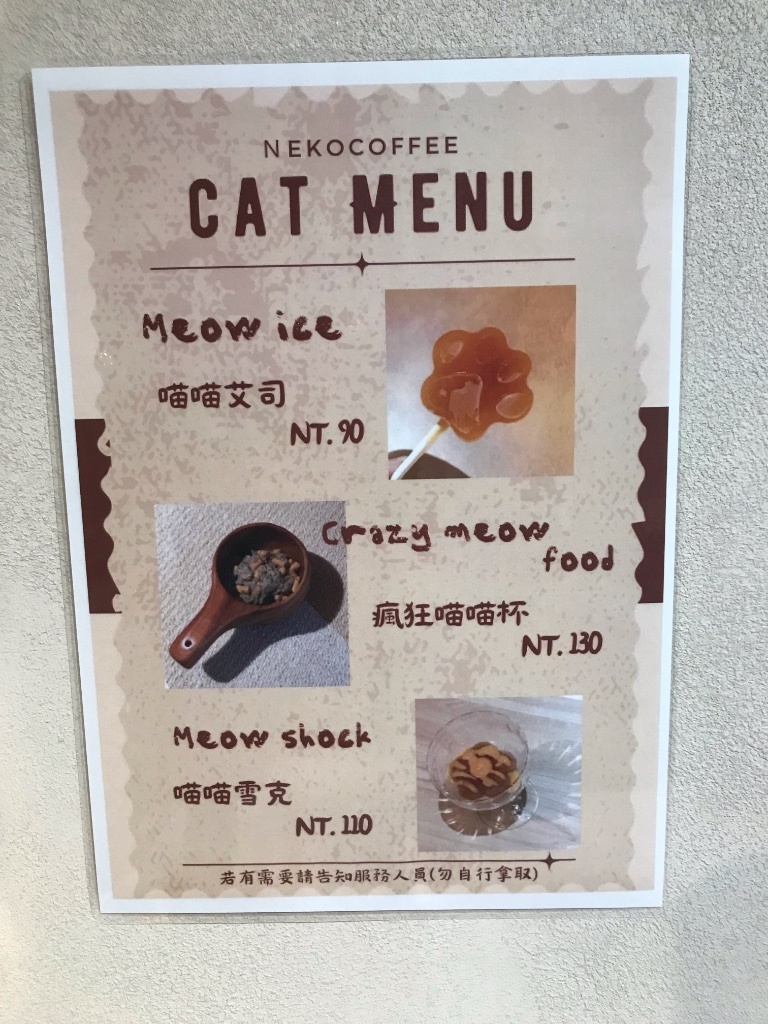 NEKOCOFFEE
CAT MENU
Meow ice
喵喵艾司
NT. 90
Crazy meow
food
瘋狂喵喵杯
NT. 130
Meow shock
喵喵雪克
NT. 110
若有需要請告知服務人員(勿自行拿取)